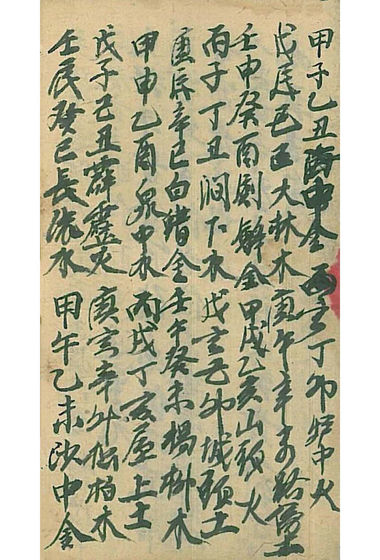 甲子乙丑海中金 丙寅丁卯炉中火
戊辰己巳大林木 庚午辛未路傍土
壬申癸酉剑鋒金 甲戌乙亥山頭火
丙子丁丑涧下水 戊寅己卯城頭土
庚辰辛巳白镴金 壬午癸未楊柳木
甲申乙酉泉中水 丙戌丁亥屋上土
戊子己丑霹靂火 庚寅辛卯松柏木
壬辰癸巳長流水 甲午乙未沙中金